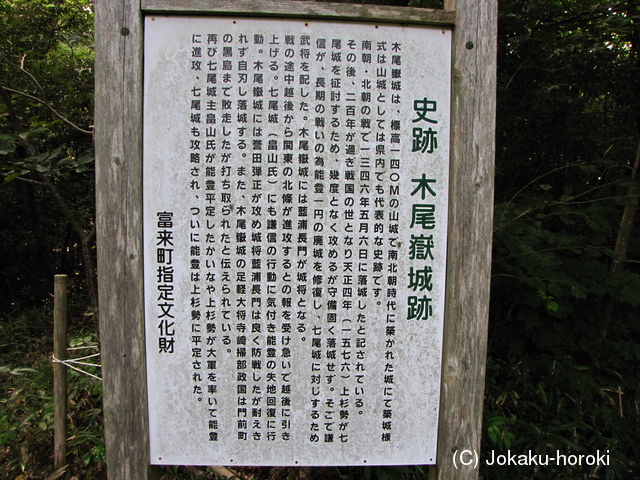 史跡 木尾嶽城跡
木尾嶽城は、標高一四〇Mの山城で南北朝時代に築かれた城にて築城様
式は山城としては県内でも代表的な史跡です。
南朝・北朝の戦で一三四六年五月六日に落城したと記されている。
その後、二百年が過ぎ戦国の世となり天正四年（一五七六）上杉勢が七
尾城を征討するため、幾度となく攻めるが守備固く落城せず。そこで謙
信が、長期の戦いの為能登一円の廃城を修復し、七尾城に対じするため
武将を配した。木尾嶽城には藍浦長門が城将となる。
戦の途中越後から関東の北條が進攻するとの報を受け急いで越後に引き
上げる。七尾城（畠山氏）にも謙信の行動に気付き能登の失地回復に行
動。木尾嶽城には誉田弾正が攻め城将藍浦長門は良く防戦したが耐えき
れず自刃し落城する。また、木尾嶽城の足軽大将寺崎掃部政国は門前町
の黒島まで敗走したが打ち取られたと伝えられている。
再び七尾城主畠山氏が能登平定したかいなや上杉勢が大軍を率いて能登
に進攻、七尾城も攻略され、ついに能登は上杉勢に平定された。
富来町指定文化財
(C) Jokaku-horoki